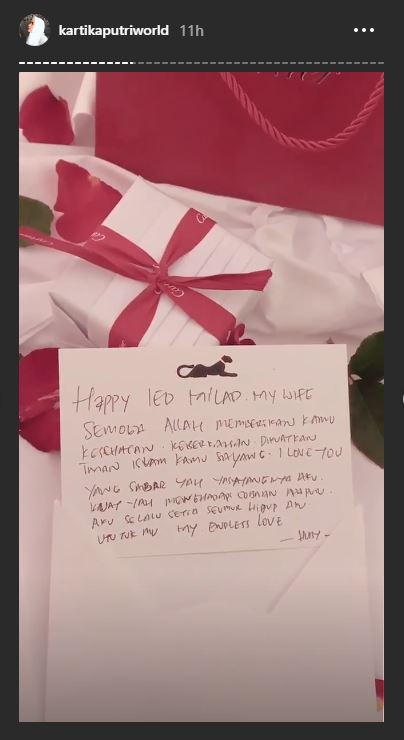 kartikaputriworld 11h
Happy IED MILAD. MY WIFE
SEMOGA ALLAH MEMBERIKAN KAMU
KESEHATAN. KEBERKAHAN. DIKUATKAN
IMAN ISLAM KAMU SAYANG. I LOVE YOU
YANG SABAR YAH SAYANGNYA AKU.
KUAT YAH MENGHADAPI COBAAN APAPUN.
AKU SELALU SETIA SEUMUR HIDUP AKU.
UNTUK MU MY ENDLESS LOVE